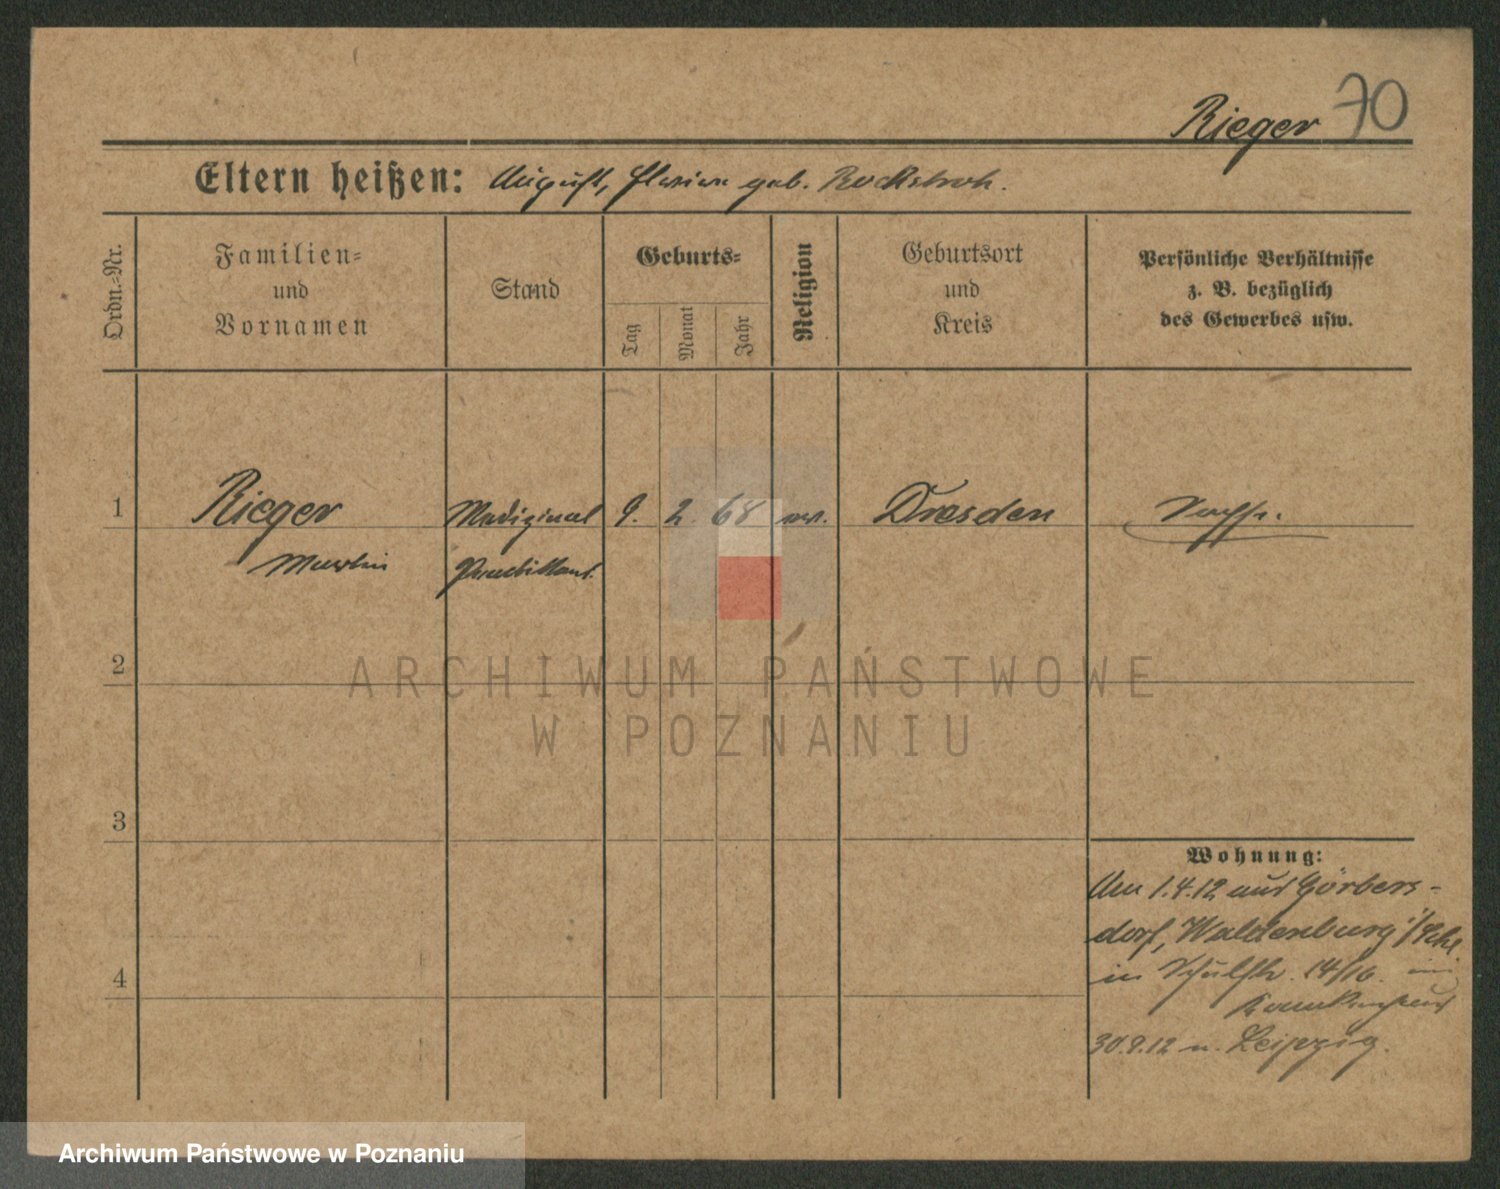 Rieger 70
Eltern heißen: August, geb. Rockstroh.
Ordn.-Nr.
Familien-
und
Vornamen
Stand
Geburts-
Tag
Monat
Jahr
Religion
Geburtsort
und
Kreis
Persönliche Verhältnisse
z. B. bezüglich
des Gewerbes usw.
1 Rieger Medizinal 9. 2. 68 ev. Dresden Sachse.
Martin Praktikant.
2
ARCHIWUM PAŃSTWOWE
W POZNANIU
3
Wohnung:
Am 1.4.12 aus Görbers-
dorf, Waldenburg i/Schl
4
in Schulstr. 14/16. im
Krankenhaus
30.9.12 n. Leipzig.
Archiwum Państwowe w Poznaniu